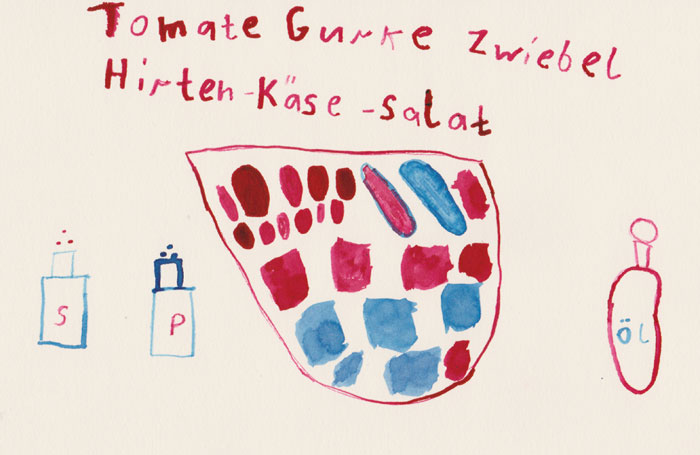 Tomate Gurke Zwiebel
Hirten-Käse-Salat
S
P
ÖL